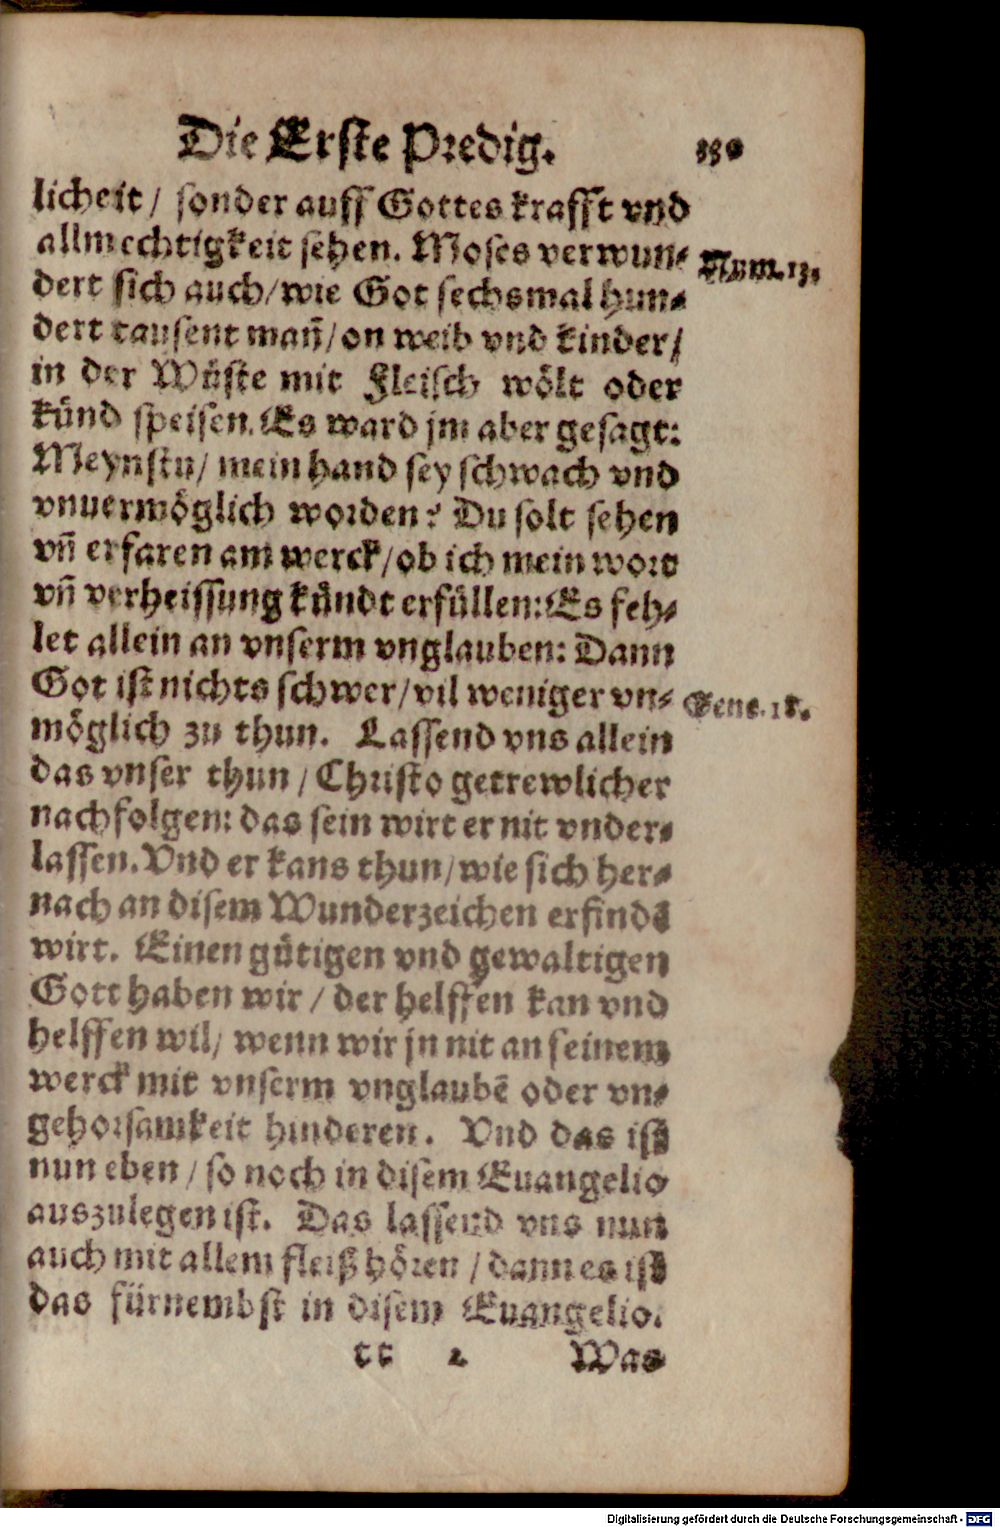 Die Erste Predig.
licheit / sonder auff Gottes krafft vnd
allmechtigkeit sehen. Moses verwun-
Num. 13.
dert sich auch / wie Got sechsmal hun-
dert tausent mañ / on weib vnd kinder /
in der Wüste mit Fleisch wölt oder
künd speisen. Es ward jm aber gesagt:
Meynstu / mein hand sey schwach vnd
vnuermöglich worden? Du solt sehen
vñ erfaren am werck / ob ich mein wort
vñ verheissung kündt erfüllen: Es feh-
let allein an vnserm vnglauben: Dann
Got ist nichts schwer / vil weniger vn-
Gene. 18.
möglich zu thun. Lassend vns allein
das vnser thun / Christo getrewlicher
nachfolgen: das sein wirt er nit vnder-
lassen. Vnd er kans thun / wie sich her-
nach an disem Wunderzeichen erfindē
wirt. Einen gütigen vnd gewaltigen
Gott haben wir / der helffen kan vnd
helffen wil / wenn wir jn nit an seinem
werck mit vnserm vnglaubē oder vn-
gehorsamkeit hinderen. Vnd das ist
nun eben / so noch in disem Euangelio
auszulegen ist. Das lassend vns nun
auch mit allem fleiß hören / dann es ist
das fürnembst in disem Euangelio.
tt 2 Was
Digitalisierung gefördert durch die Deutsche Forschungsgemeinschaft - DFG